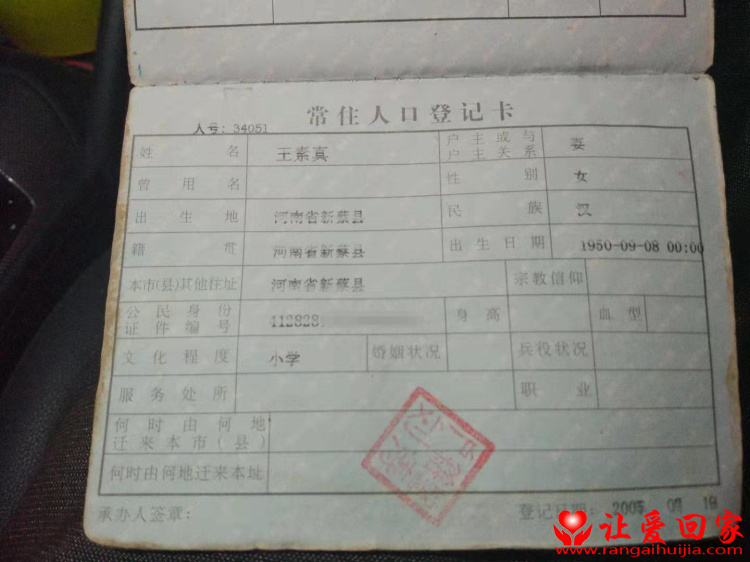 常住人口登记卡
人号: 34051
姓 名 王素真 户主或与户主关系 妻
曾用名 性别 女
出生地 河南省新蔡县 民族 汉
籍贯 河南省新蔡县 出生日期 1950-09-08 00:00
本市(县)其他住址 河南省新蔡县 宗教信仰
公民身份证件编号 412828 身高 血型
文化程度 小学 婚姻状况 兵役状况
服务处所 职业
何时由何地迁来本市(县)
何时由何地迁来本址
承办人签章: 登记日期: 2005
让爱回家
www.rangaihuijia.com